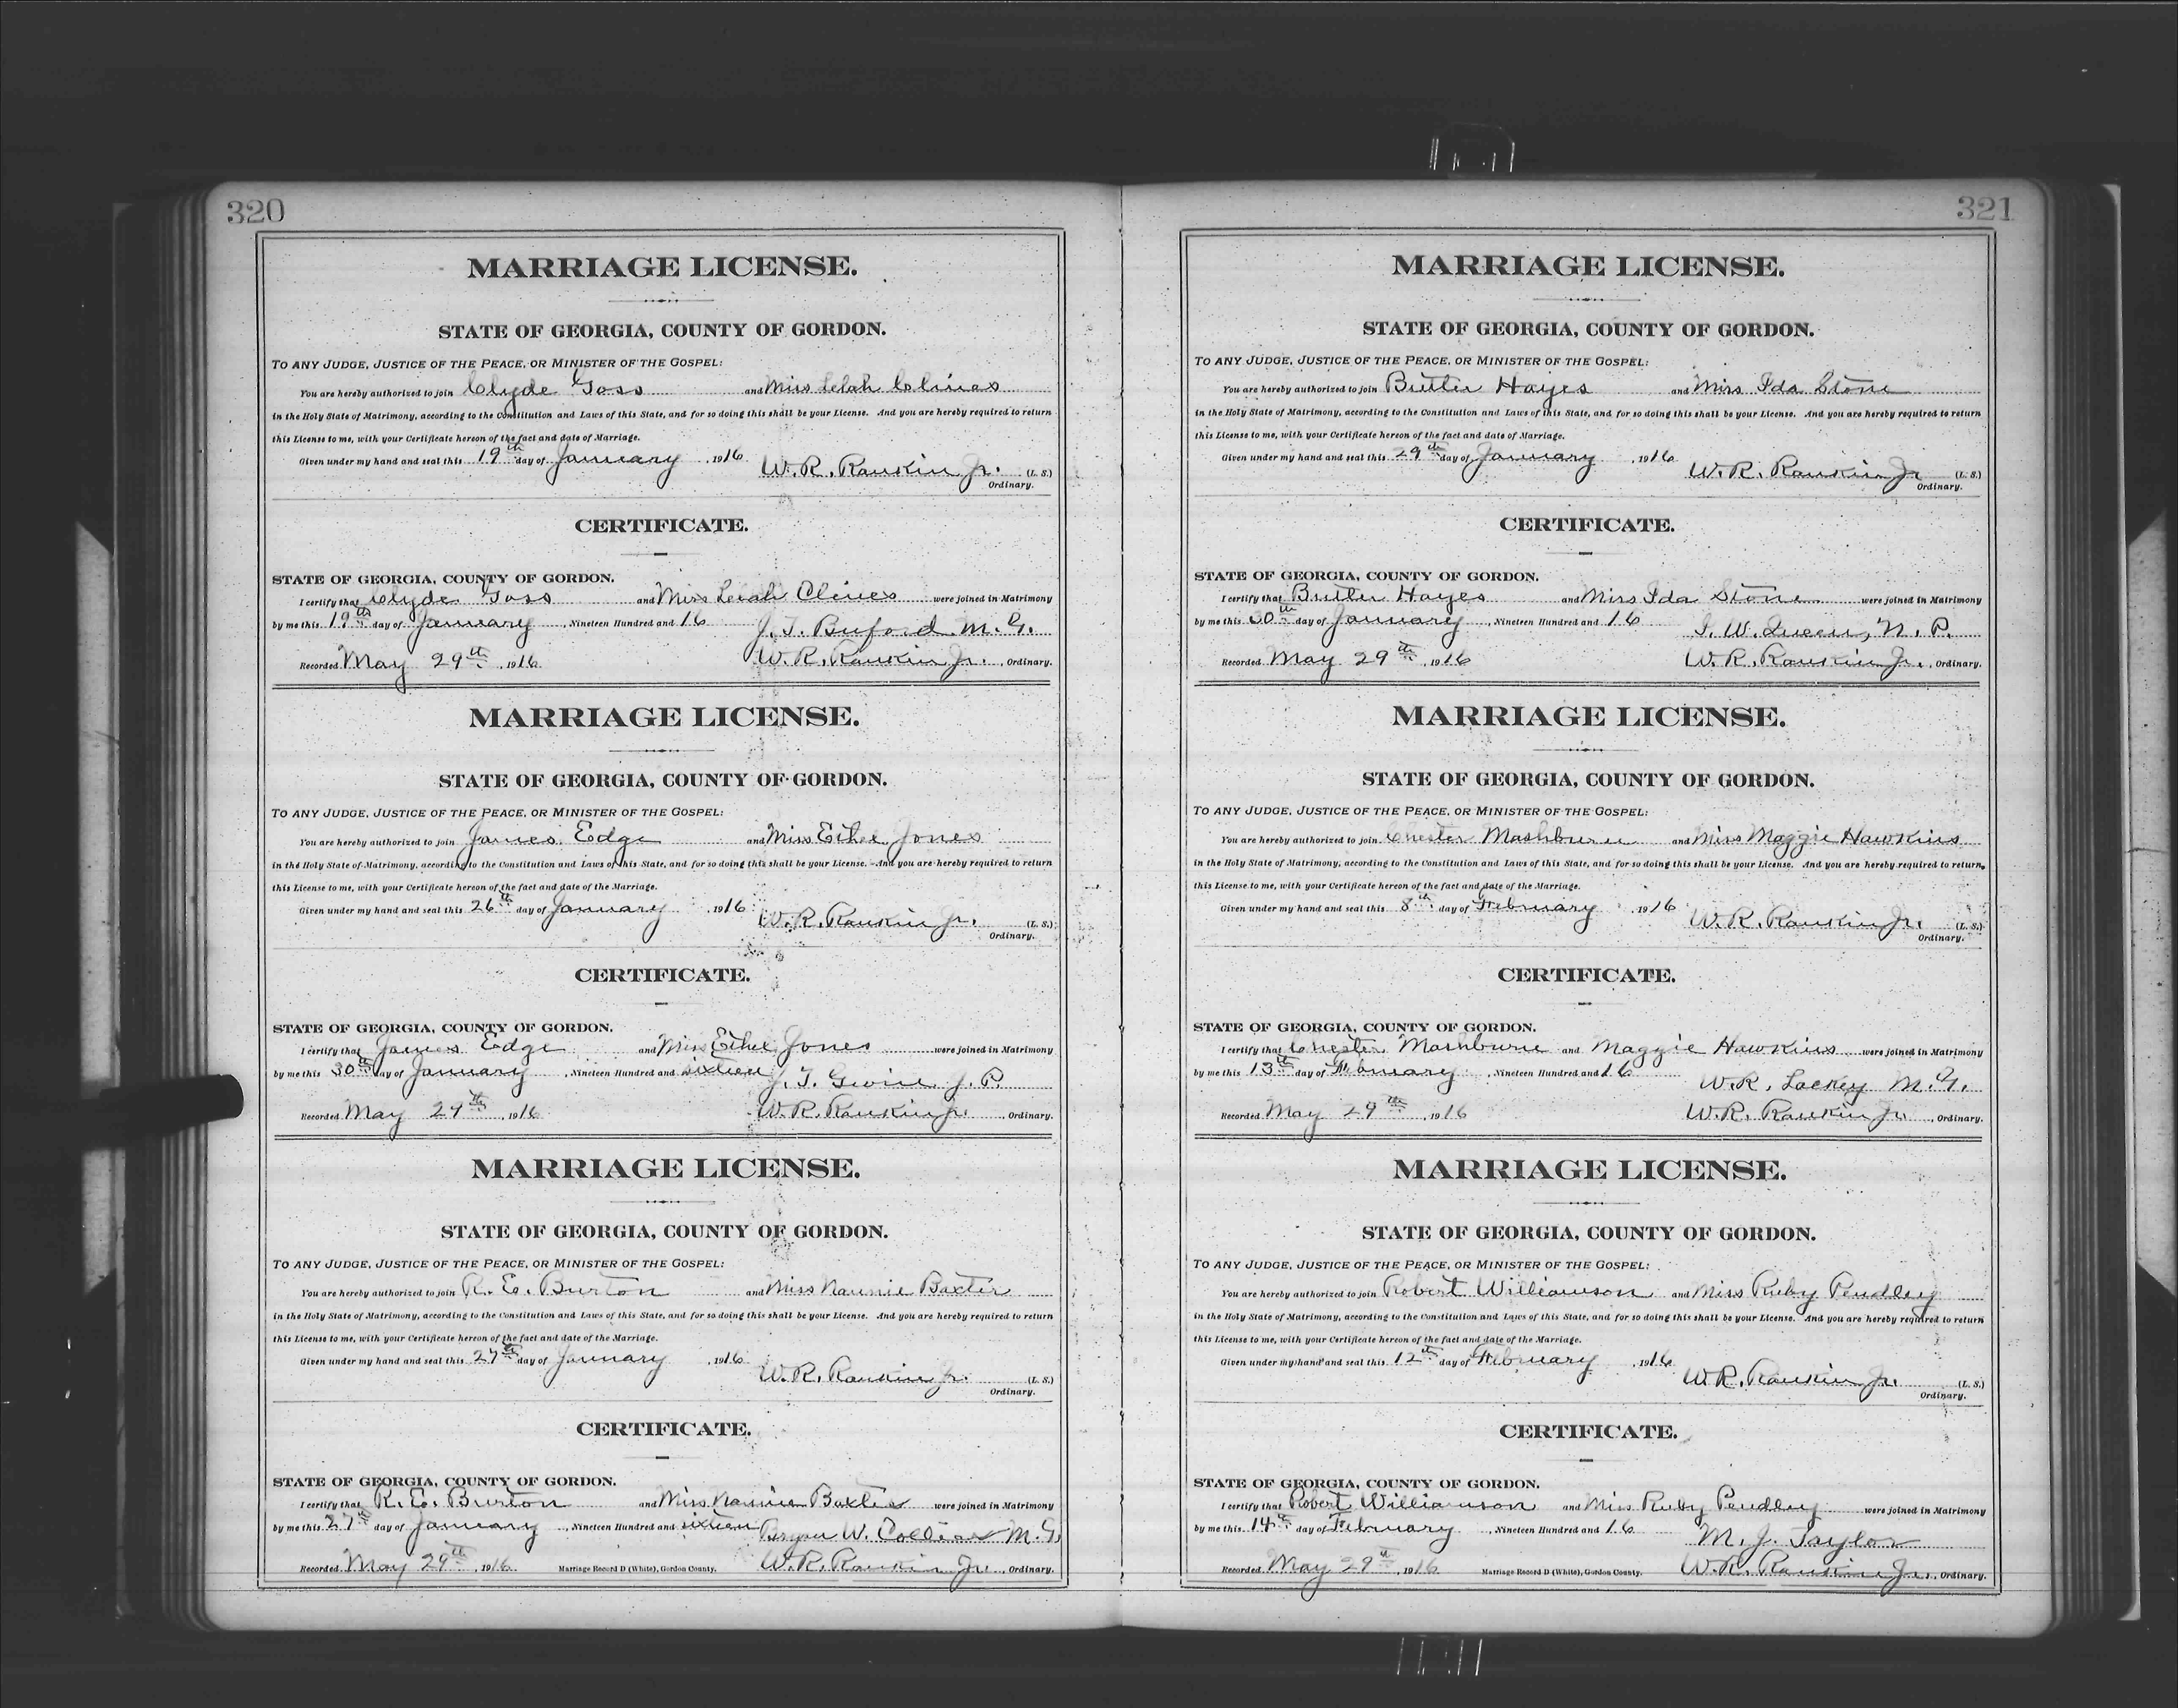 320
MARRIAGE LICENSE.
STATE OF GEORGIA, COUNTY OF GORDON.
TO ANY JUDGE, JUSTICE OF THE PEACE, OR MINISTER OF THE GOSPEL:
You are hereby authorized to join Clyde Goss and Miss Lelah Clines
in the Holy State of Matrimony, according to the Constitution and Laws of this State, and for so doing this shall be your License. And you are hereby required to return
this License to me, with your Certificate hereon of the fact and date of Marriage.
Given under my hand and seal this 19th day of January, 1916 W. R. Rankin Jr. (L. S.)
Ordinary.
CERTIFICATE.
STATE OF GEORGIA, COUNTY OF GORDON.
I certify that Clyde Goss and Miss Lelah Clines were joined in Matrimony
by me this 19th day of January, Nineteen Hundred and 16 J. T. Buford M. G.
Recorded May 29th, 1916 W. R. Rankin Jr., Ordinary.
MARRIAGE LICENSE.
STATE OF GEORGIA, COUNTY OF GORDON.
TO ANY JUDGE, JUSTICE OF THE PEACE, OR MINISTER OF THE GOSPEL:
You are hereby authorized to join James Edge and Miss Ethel Jones
in the Holy State of Matrimony, according to the Constitution and Laws of this State, and for so doing this shall be your License. And you are hereby required to return
this License to me, with your Certificate hereon of the fact and date of the Marriage.
Given under my hand and seal this 26th day of January, 1916 W. R. Rankin Jr. (L. S.)
Ordinary.
CERTIFICATE.
STATE OF GEORGIA, COUNTY OF GORDON.
I certify that James Edge and Miss Ethel Jones were joined in Matrimony
by me this 30th day of January, Nineteen Hundred and sixteen J. T. J. P.
Recorded May 29th, 1916 W. R. Rankin Jr., Ordinary.
MARRIAGE LICENSE.
STATE OF GEORGIA, COUNTY OF GORDON.
TO ANY JUDGE, JUSTICE OF THE PEACE, OR MINISTER OF THE GOSPEL:
You are hereby authorized to join R. E. Burton and Miss Nannie Baxter
in the Holy State of Matrimony, according to the Constitution and Laws of this State, and for so doing this shall be your License. And you are hereby required to return
this License to me, with your Certificate hereon of the fact and date of the Marriage.
Given under my hand and seal this 27th day of January, 1916 W. R. Rankin Jr. (L. S.)
Ordinary.
CERTIFICATE.
STATE OF GEORGIA, COUNTY OF GORDON.
I certify that R. E. Burton and Miss Nannie Baxter were joined in Matrimony
by me this 27th day of January, Nineteen Hundred and sixteen Bryan W. Collier M. G.
Recorded May 29th, 1916 Marriage Record D (White), Gordon County. W. R. Rankin Jr., Ordinary.
321
MARRIAGE LICENSE.
STATE OF GEORGIA, COUNTY OF GORDON.
TO ANY JUDGE, JUSTICE OF THE PEACE, OR MINISTER OF THE GOSPEL:
You are hereby authorized to join Butler Hayes and Miss Ida Stone
in the Holy State of Matrimony, according to the Constitution and Laws of this State, and for so doing this shall be your License. And you are hereby required to return
this License to me, with your Certificate hereon of the fact and date of Marriage.
Given under my hand and seal this 29th day of January, 1916 W. R. Rankin Jr (L. S.)
Ordinary.
CERTIFICATE.
STATE OF GEORGIA, COUNTY OF GORDON.
I certify that Butler Hayes and Miss Ida Stone were joined in Matrimony
by me this 30th day of January, Nineteen Hundred and 16 J. W. Queen, N. P.
Recorded May 29th, 1916 W. R. Rankin Jr., Ordinary.
MARRIAGE LICENSE.
STATE OF GEORGIA, COUNTY OF GORDON.
TO ANY JUDGE, JUSTICE OF THE PEACE, OR MINISTER OF THE GOSPEL:
You are hereby authorized to join Chester Mashburn and Miss Maggie Hawkins
in the Holy State of Matrimony, according to the Constitution and Laws of this State, and for so doing this shall be your License. And you are hereby required to return
this License to me, with your Certificate hereon of the fact and date of the Marriage.
Given under my hand and seal this 8th day of February, 1916 W. R. Rankin Jr. (L. S.)
Ordinary.
CERTIFICATE.
STATE OF GEORGIA, COUNTY OF GORDON.
I certify that Chester Mashburn and Maggie Hawkins were joined in Matrimony
by me this 13th day of February, Nineteen Hundred and 16 W. R. Lackey M. G.
Recorded May 29th, 1916 W. R. Rankin Jr., Ordinary.
MARRIAGE LICENSE.
STATE OF GEORGIA, COUNTY OF GORDON.
TO ANY JUDGE, JUSTICE OF THE PEACE, OR MINISTER OF THE GOSPEL:
You are hereby authorized to join Robert Williamson and Miss Ruby Pendley
in the Holy State of Matrimony, according to the Constitution and Laws of this State, and for so doing this shall be your License. And you are hereby required to return
this License to me, with your Certificate hereon of the fact and date of the Marriage.
Given under my hand and seal this 12th day of February, 1916 W. R. Rankin Jr. (L. S.)
Ordinary.
CERTIFICATE.
STATE OF GEORGIA, COUNTY OF GORDON.
I certify that Robert Williamson and Miss Ruby Pendley were joined in Matrimony
by me this 14th day of February, Nineteen Hundred and 16 M. J. Taylor
Recorded May 29th, 1916 Marriage Record D (White), Gordon County. W. R. Rankin Jr., Ordinary.